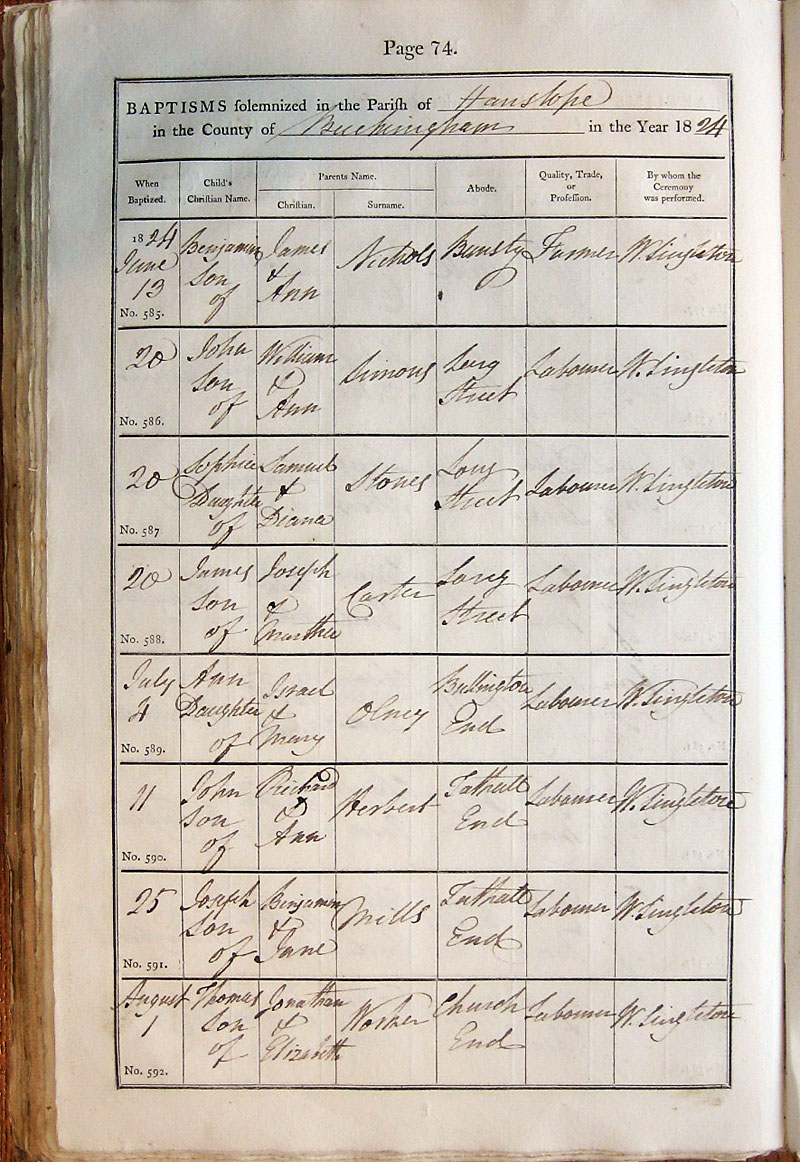 Page 74.
BAPTISMS solemnized in the Parish of Hanslope
in the County of Buckingham in the Year 1824
When Baptized. Child's Christian Name. Parents Name. Abode. Quality, Trade, or Profession. By whom the Ceremony was performed.
Christian. Surname.
1824 Benjamin James Nichols Farmer W. Singleton
June Son &
13 of Ann
No. 585.
20 John William Simons Long Labourer W. Singleton
Son & Street
of Ann
No. 586.
20 Sophia Samuel Stones Long Labourer W. Singleton
Daughter & Street
of Diana
No. 587
20 James Joseph Carter Long Labourer W. Singleton
Son & Street
of Martha
No. 588.
July Ann Israel Olney Bullington Labourer W. Singleton
4 Daughter & End
of Mary
No. 589.
11 John Richard Herbert Tathall Labourer W. Singleton
Son & End
of Ann
No. 590.
25 Joseph Benjamin Mills Tathall Labourer W. Singleton
Son & End
of Jane
No. 591.
August Thomas Jonathan Worker Church Labourer W. Singleton
1 Son & End
of Elizabeth
No. 592.